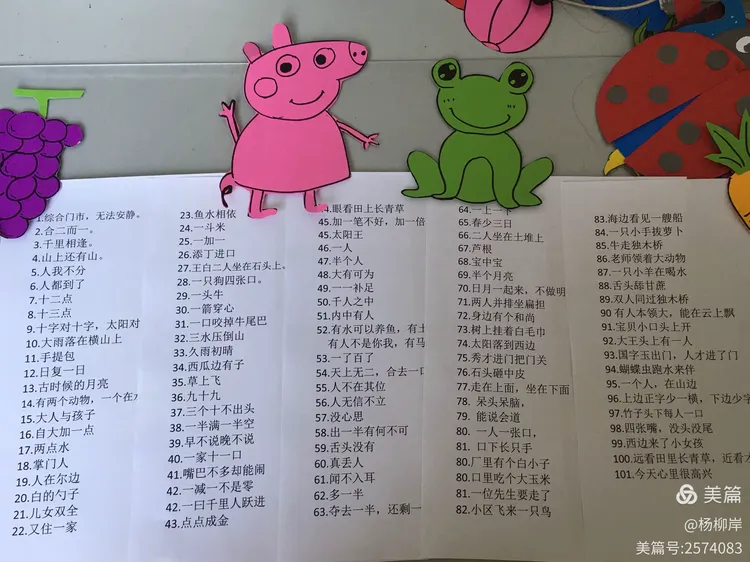 1.综合门市，无法安静。
2.合二而一。
3.千里相逢。
4.山上还有山。
5.人我不分
6.人都到了
7.十二点
8.十三点
9.十字对十字，太阳对
10.大雨落在横山上
11.手提包
12.日复一日
13.古时候的月亮
14.有两个动物，一个在
15.大人与孩子
16.自大加一点
17.两点水
18.掌门人
19.人在尔边
20.白的勺子
21.儿女双全
22.又住一家
23.鱼水相依
24.一斗米
25.一加一
26.添丁进口
27.王白二人坐在石头上、
28.一只狗四张口。
29.一头牛
30.一箭穿心
31.一口咬掉牛尾巴
32.三水压倒山
33.久雨初晴
34.西瓜边有子
35.草上飞
36.九十九
37.三个十不出头
38.一半满一半空
39.早不说晚不说
40.一家十一口
41.嘴巴不多却能闹
42.一减一不是零
42.一曰千里人跃进
43.点点成金
4.眼看田上长青草
45.加一笔不好，加一倍
45.太阳王
46.一人
47.半个人
48.大有可为
49.一一补足
50.千人之中
51.内中有人
52.有水可以养鱼，有土
有人不是你我，有马
53.一了百了
54.天上无二，合去一口
55.人不在其位
56.人无信不立
57.没心思
58.出一半有何不可
59.舌头没有
60.真丢人
61.闻不入耳
62.多一半
63.夺去一半，还剩一
64.一上一下
65.春少三日
66.二人坐在土堆上
67.芦根
68.宝中宝
69.半个月亮
70.日月一起来，不做明
71.两人并排坐扁担
72.身边有个和尚
73.树上挂着白毛巾
74.太阳落到西边
75.秀才进门把门关
76.石头砸中皮
77.走在上面，坐在下面
78. 呆头呆脑，
79. 能说会道
80. 一人一张口，
81. 口下长只手
80.厂里有个白小子
80.口里吃个大玉米
81.一位先生要走了
82.小区飞来一只鸟
83.海边看见一艘船
84.一只小手拔萝卜
85.牛走独木桥
86.老师领着大动物
87.一只小羊在喝水
88.舌头舔甘蔗
89.双人同过独木桥
90 有人本领大，能在云上飘
91.宝贝小口头上开
92.大王头上有一人
93.国字玉出门，人才进了门
94.蝴蝶虫跑水来伴
95.一个人，在山边
96.上边正字少一横，下边少字
97.竹子头下每人一口
98.四张嘴，没头没尾
99.西边来了小女孩
100.远看田里长青草，近看
101.今天心里很高兴
美篇
@杨柳岸
美篇号:2574083